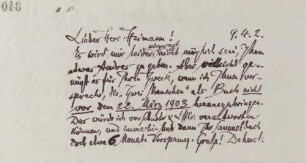 9.4.2.
Lieber Herr Heimann!
Es wird mir leider nicht möglich sein, Ihnen
etwas Andres zu geben. Aber vielleicht ge-
nügt es für Ihren Zweck, wenn ich Ihnen ver-
spreche, die „Zwei Menschen" als Buch nicht
vor dem 22. März 1903 herauszubringen.
Das würde ich vor Schuster & Lfflr. verantworten
können, und immerhin hat dann Ihr Sammelbuch
doch etwa 6 Monate Vorsprung. Gruß! Dehmel.